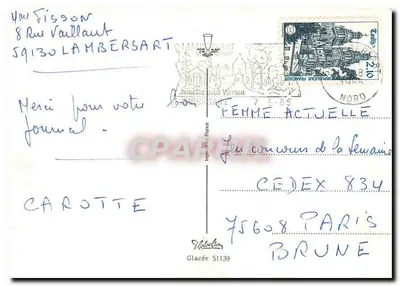 Mme FISSON
8 Rue Vaillant
59130 LAMBERSART
Merci pour votre
Journal.
CAROTTE
2,10
REPUBLIQUE FRANCAISE
NORD
CPARAMA
FEMME ACTUELLE
Jeu concours de la Semaine
CEDEX 834
75608 PARIS
BRUNE
Glacée 51139